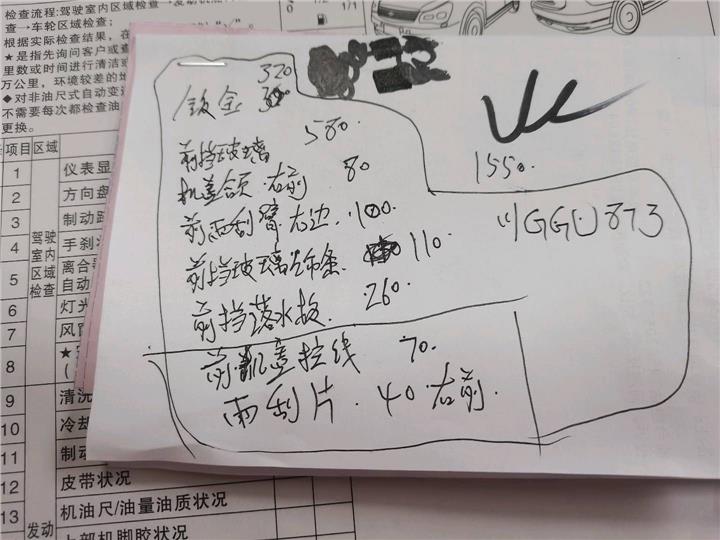 检查流程:驾驶室内区域检查→发动机
查→车轮区域检查;
根据实际检查结果,在
★是指先询问客户或查
里数或时间进行清洁或
万公里,环境较差的地
◆对非油尺式自动变速
不需要每次都检查油
更换。
项目 区域
1 仪表显
2 方向盘
3 制动踏
4 手刹
5 离合器
自动
6 灯光
7 风窗
8 ★
驾驶室内区域检查
9 清洗
10 冷却
11 制动
12 皮带状况
13 机油尺/油量油质状况
上部机脚胶状况
发动
320
钣金
前挡玻璃 580.
机盖锁.右前 80
前雨刮臂右边.100
前挡玻璃饰条 110.
前挡落水板. 260.
前机盖拉线 70.
雨刮片.40右前.
1550.
GGU873